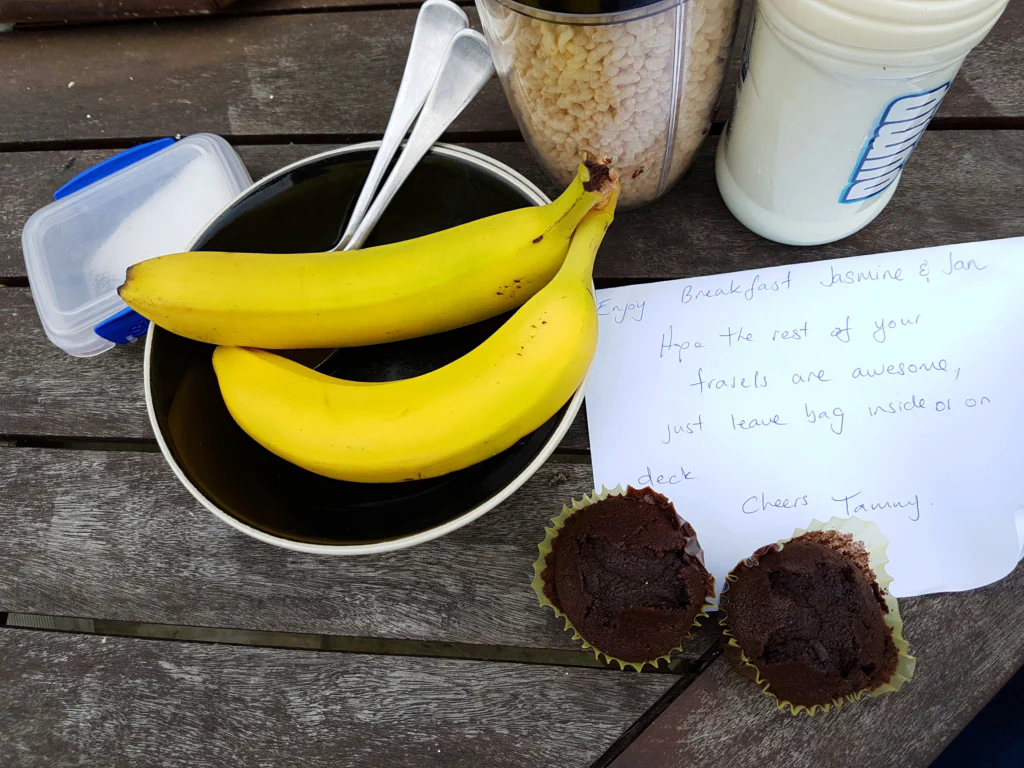 Enjoy Breakfast Jasmine & Jan
Hope the rest of your
travels are awesome,
just leave bag inside or on
deck.
Cheers Tammy.